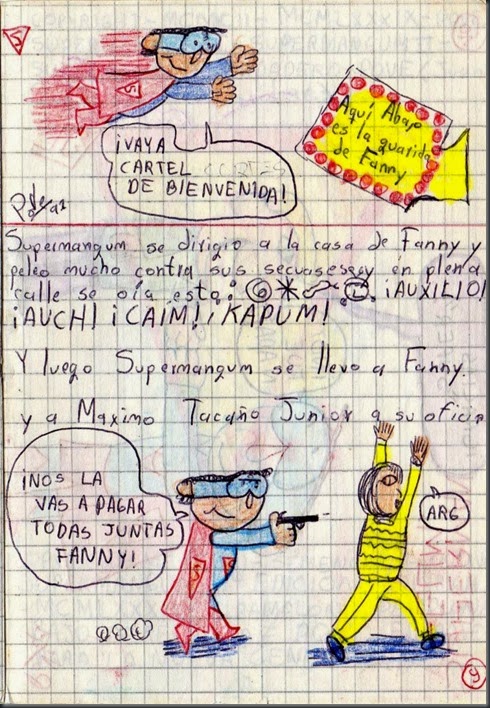 S
¡VAYA
CARTEL
DE BIENVENIDA!
Aquí Abajo
es la guarida
de Fanny
S
Supermangum se dirigio a la casa de Fanny y
peleo mucho contra sus secuaseses y en plena
calle se oía esto: ¡AUXILIO!
¡AUCH! ¡CAIM! ¡KAPUM!
Y luego Supermangum se llevo a Fanny.
y a Maximo Tacaño Junior a su oficin
¡NOS LA
VAS A PAGAR
TODAS JUNTAS
FANNY!
ARG
S
9